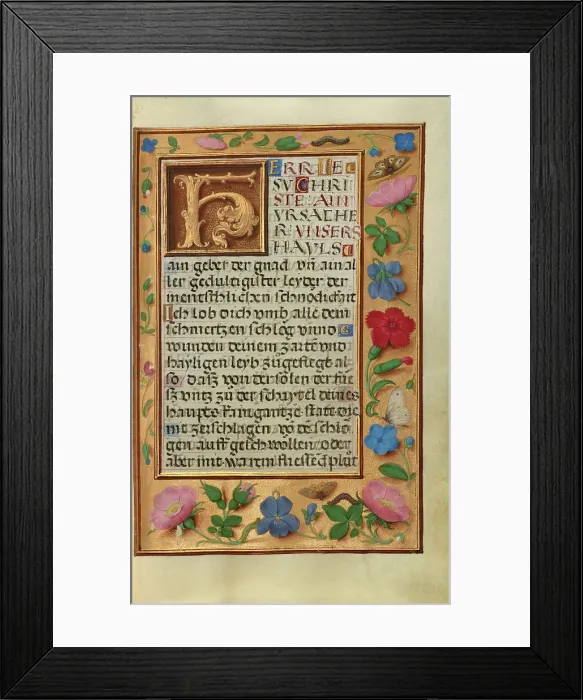 HERR IE
SV CHRI
STE AIN
VRSACHE
R VNSERS
HAYLS
ain geber der gnad vn̄ ain al
ler gedultigister leyder der
mentschlichen schnödichait
Ich lob dich vmb alle dein
schmertzen schlög vnnd
wunden deinem zarten vnd
hayligen leyb zugefiegt al
so daß von der solen der fie
ß vntz zu der schaytel deines
haupts kain gantze statt die
nit zerschlagen vō dē schlo
gen auff geschwollen oder
aber mit warem fliessēd plůt